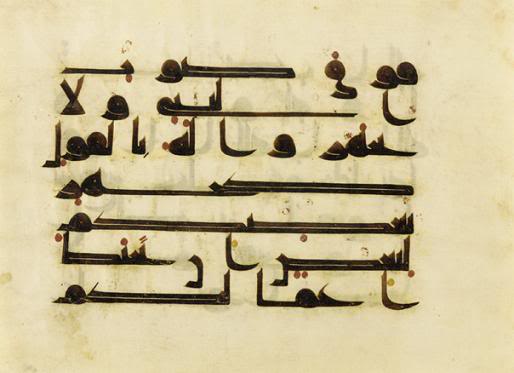 فوق صوت
النبي ولا
تجهروا له بالقول
كجهر
بعضكم
لبعض ان تحبط
اعمالكم